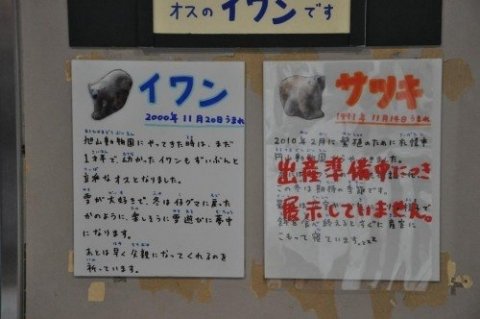 オスのイワンです
イワン
2000年11月20日うまれ
旭山動物園にやってきた時は、まだ
1才半で幼かったイワンもずいぶんと
立派なオスとなりました。
雪が大好きで、冬は仔グマに戻った
かのように、楽しそうに雪遊びに夢中
になります。
あとは早く父親になってくれるのを
祈っています。
サツキ
11月14日うまれ
2010年2月に繁殖のために札幌市
円山動物園
出産準備中につき
この冬は期待の季節です。
展示していません。
こもって寝ています。zzz